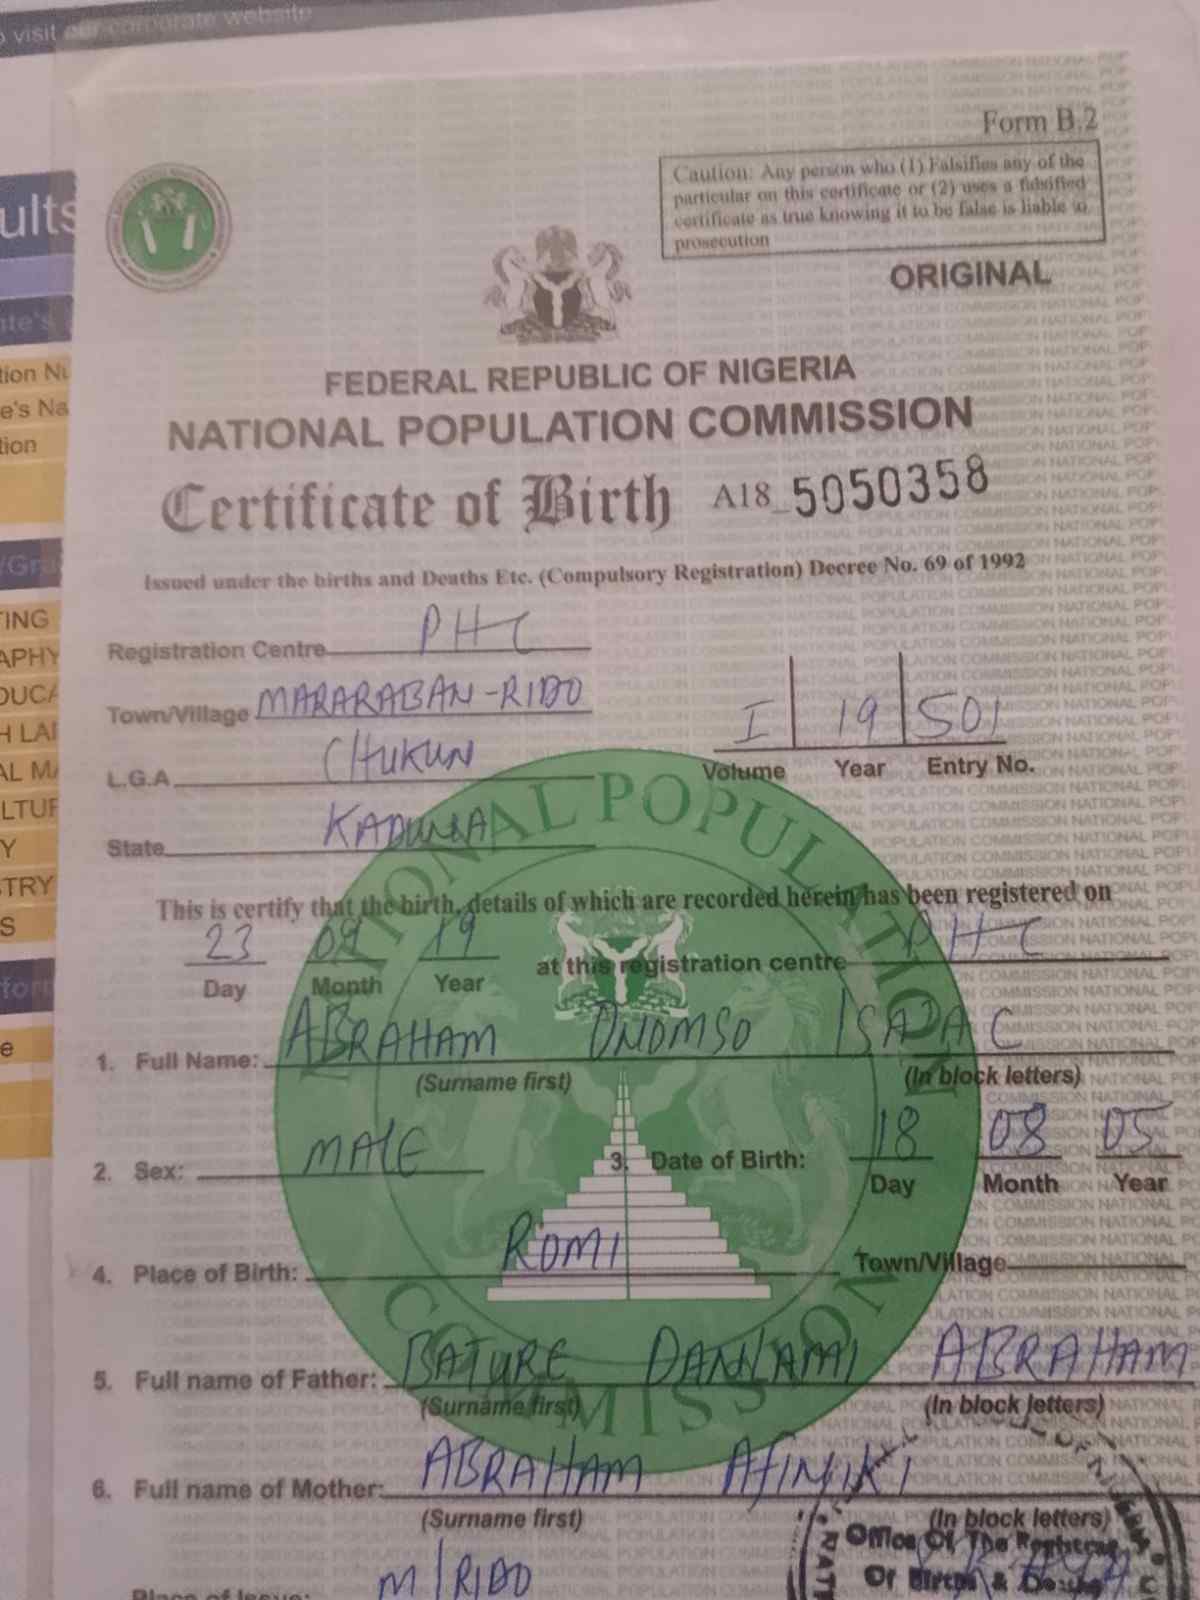 o visit our corporate website
Form B.2
Caution: Any person who (1) Falsifies any of the
particular on this certificate or (2) uses a falsified
certificate as true knowing it to be false is liable to
prosecution
ORIGINAL
FEDERAL REPUBLIC OF NIGERIA
NATIONAL POPULATION COMMISSION
Certificate of Birth A18_5050358
Issued under the births and Deaths Etc. (Compulsory Registration) Decree No. 69 of 1992
Registration Centre PHC
Town/Village MARARABAN-RIDO
I 19 501
Volume Year Entry No.
L.G.A CHUKUN
State KADUNA
This is certify that the birth, details of which are recorded herein has been registered on
23 09 19 at this registration centre PHC
Day Month Year
1. Full Name: ABRAHAM ONOMSO ISAAC
(Surname first) (In block letters)
2. Sex: MALE 3. Date of Birth: 18 08 05
Day Month Year
4. Place of Birth: ROMI Town/Village
5. Full name of Father: BATURE DANLAMI ABRAHAM
(Surname first) (In block letters)
6. Full name of Mother: ABRAHAM AFINIKI
(Surname first) (In block letters)
Place of Issue: M/RIDO
Office Of The Registrar
Of Births & Deaths
NATIONAL POPULATION COMMISSION
ults
ate's
tion Nu
e's Na
tion
/Gra
TING
APHY
DUCA
H LAN
AL MA
LTUR
Y
STRY
S
form
e